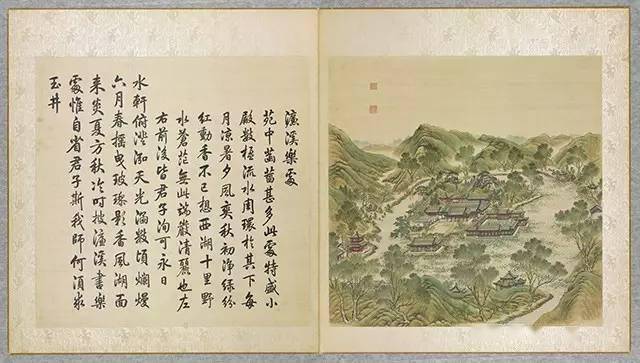 濂溪樂處
苑中菡萏甚多此處特盛小
殿數楹流水周環於其下每
月涼暑夕風爽秋初淨綠紛
紅動香不已想西湖十里野
水蒼茫無此端嚴清麗也左
右前後皆君子洵可永日
水軒俯澄泓天光涵數頃爛熳
六月春搖曳玻瓈影香風湖面
來炎夏方秋冷時披濂溪書樂
處惟自省君子斯我師何須求
玉井